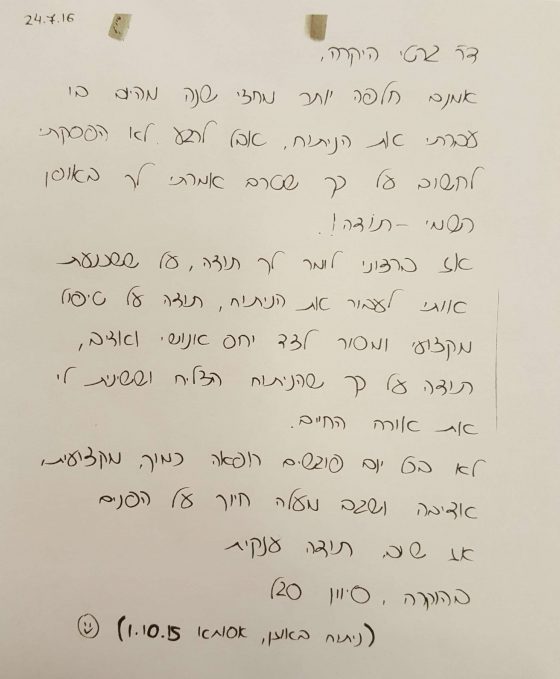 24.7.16
ד"ר ברטי היקרה,
אמנם חלפה יותר מחצי שנה מהיום בו
עברתי את הניתוח, אבל לרגע לא הפסקתי
לחשוב על כך שטרם אמרתי לך באופן
רשמי - תודה!.
אז ברצוני לומר לך תודה, על ששכנעת
אותי לעבור את הניתוח, תודה על טיפול
מקצועי ומסור לצד יחס אנושי ואדיב,
תודה על כך שהניתוח הצליח וששינית לי
את אורח החיים.
לא בכל יום פוגשים רופאה כמוך, מקצועית,
אדיבה ושגם מעלה חיוך על הפנים
אז שוב, תודה ענקית
בהוקרה, סיוון
(ניתוח באוזן, אסותא 1.10.15)